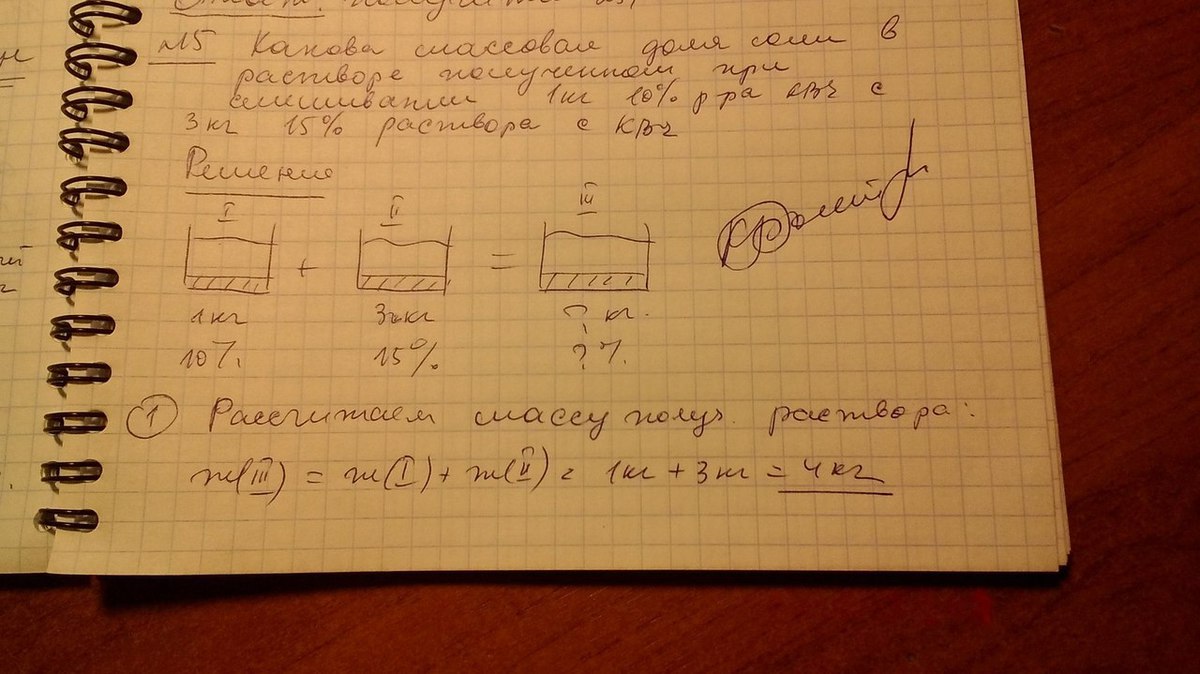 №15 Какова массовая доля соли в
растворе полученном при
смешивании 1кг 10% р-ра KBr с
3кг 15% раствора с KBr
Решение
I II III
+ =
1кг 3кг ? кг.
10% 15% ? %.
① Рассчитаем массу получ. раствора:
m(III) = m(I) + m(II) = 1кг + 3кг = 4кг